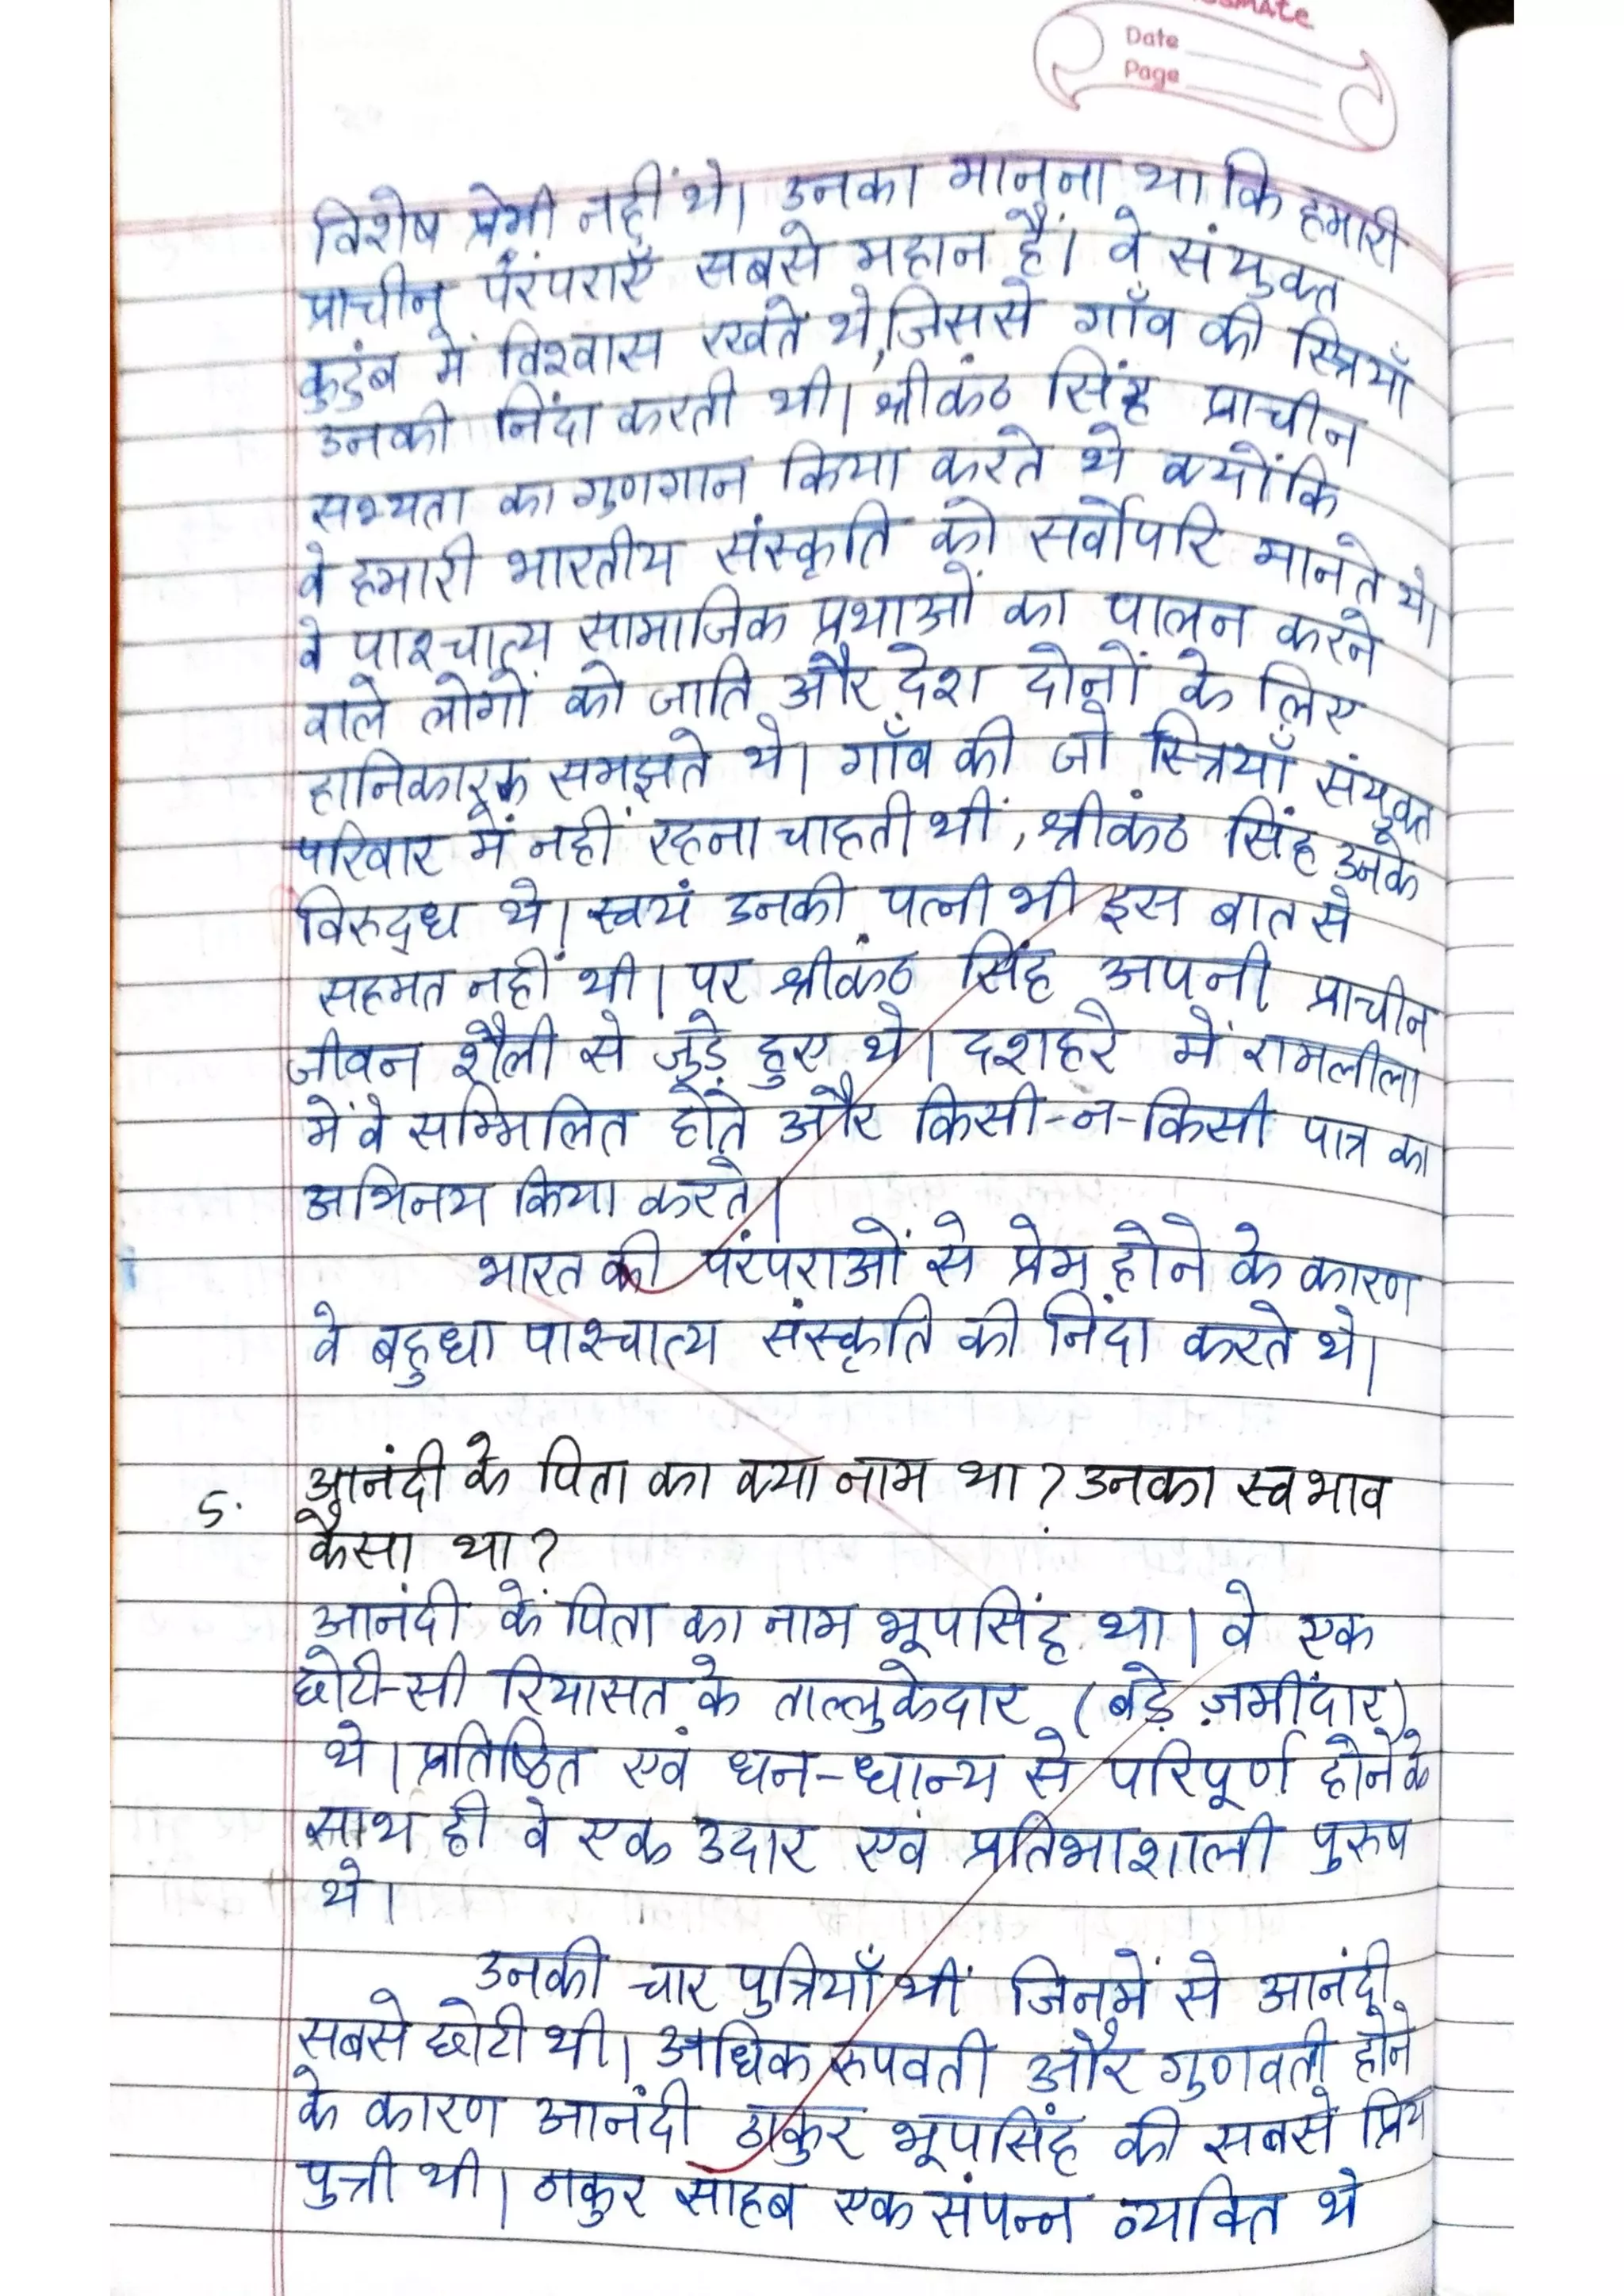 Date
Page
विशेष प्रेमी नहीं थे। उनका मानना था कि हमारी
प्राचीन परंपराएँ सबसे महान हैं। वे संयुक्त
कुटुंब में विश्वास रखते थे, जिससे गाँव की स्त्रियाँ
उनकी निंदा करती थी। श्रीकंठ सिंह प्राचीन
सभ्यता का गुणगान किया करते थे क्योंकि
वे हमारी भारतीय संस्कृति को सर्वोपरि मानते थे।
वे पाश्चात्य सामाजिक प्रथाओं का पालन करने
वाले लोगों को जाति और देश दोनों के लिए
हानिकारक समझते थे। गाँव की जो स्त्रियाँ संयुक्त
परिवार में नहीं रहना चाहती थीं, श्रीकंठ सिंह उनके
विरुद्ध थे। स्वयं उनकी पत्नी भी इस बात से
सहमत नहीं थी। पर श्रीकंठ सिंह अपनी प्राचीन
जीवन शैली से जुड़े हुए थे। दशहरे में रामलीला
में वे सम्मिलित होते और किसी-न-किसी पात्र का
अभिनय किया करते।
भारत की परंपराओं से प्रेम होने के कारण
वे बहुधा पाश्चात्य संस्कृति की निंदा करते थे।
5. आनंदी के पिता का क्या नाम था? उनका स्वभाव
कैसा था?
आनंदी के पिता का नाम भूपसिंह था। वे एक
छोटी-सी रियासत के ताल्लुकेदार (बड़े ज़मींदार)
थे। प्रतिष्ठित एवं धन-धान्य से परिपूर्ण होने के
साथ ही वे एक उदार एवं प्रतिभाशाली पुरुष
थे।
उनकी चार पुत्रियाँ थीं जिनमें से आनंदी
सबसे छोटी थी। अधिक रुपवती और गुणवती होने
के कारण आनंदी ठाकुर भूपसिंह की सबसे प्रिय
पुत्री थी। ठाकुर साहब एक संपन्न व्यक्ति थे